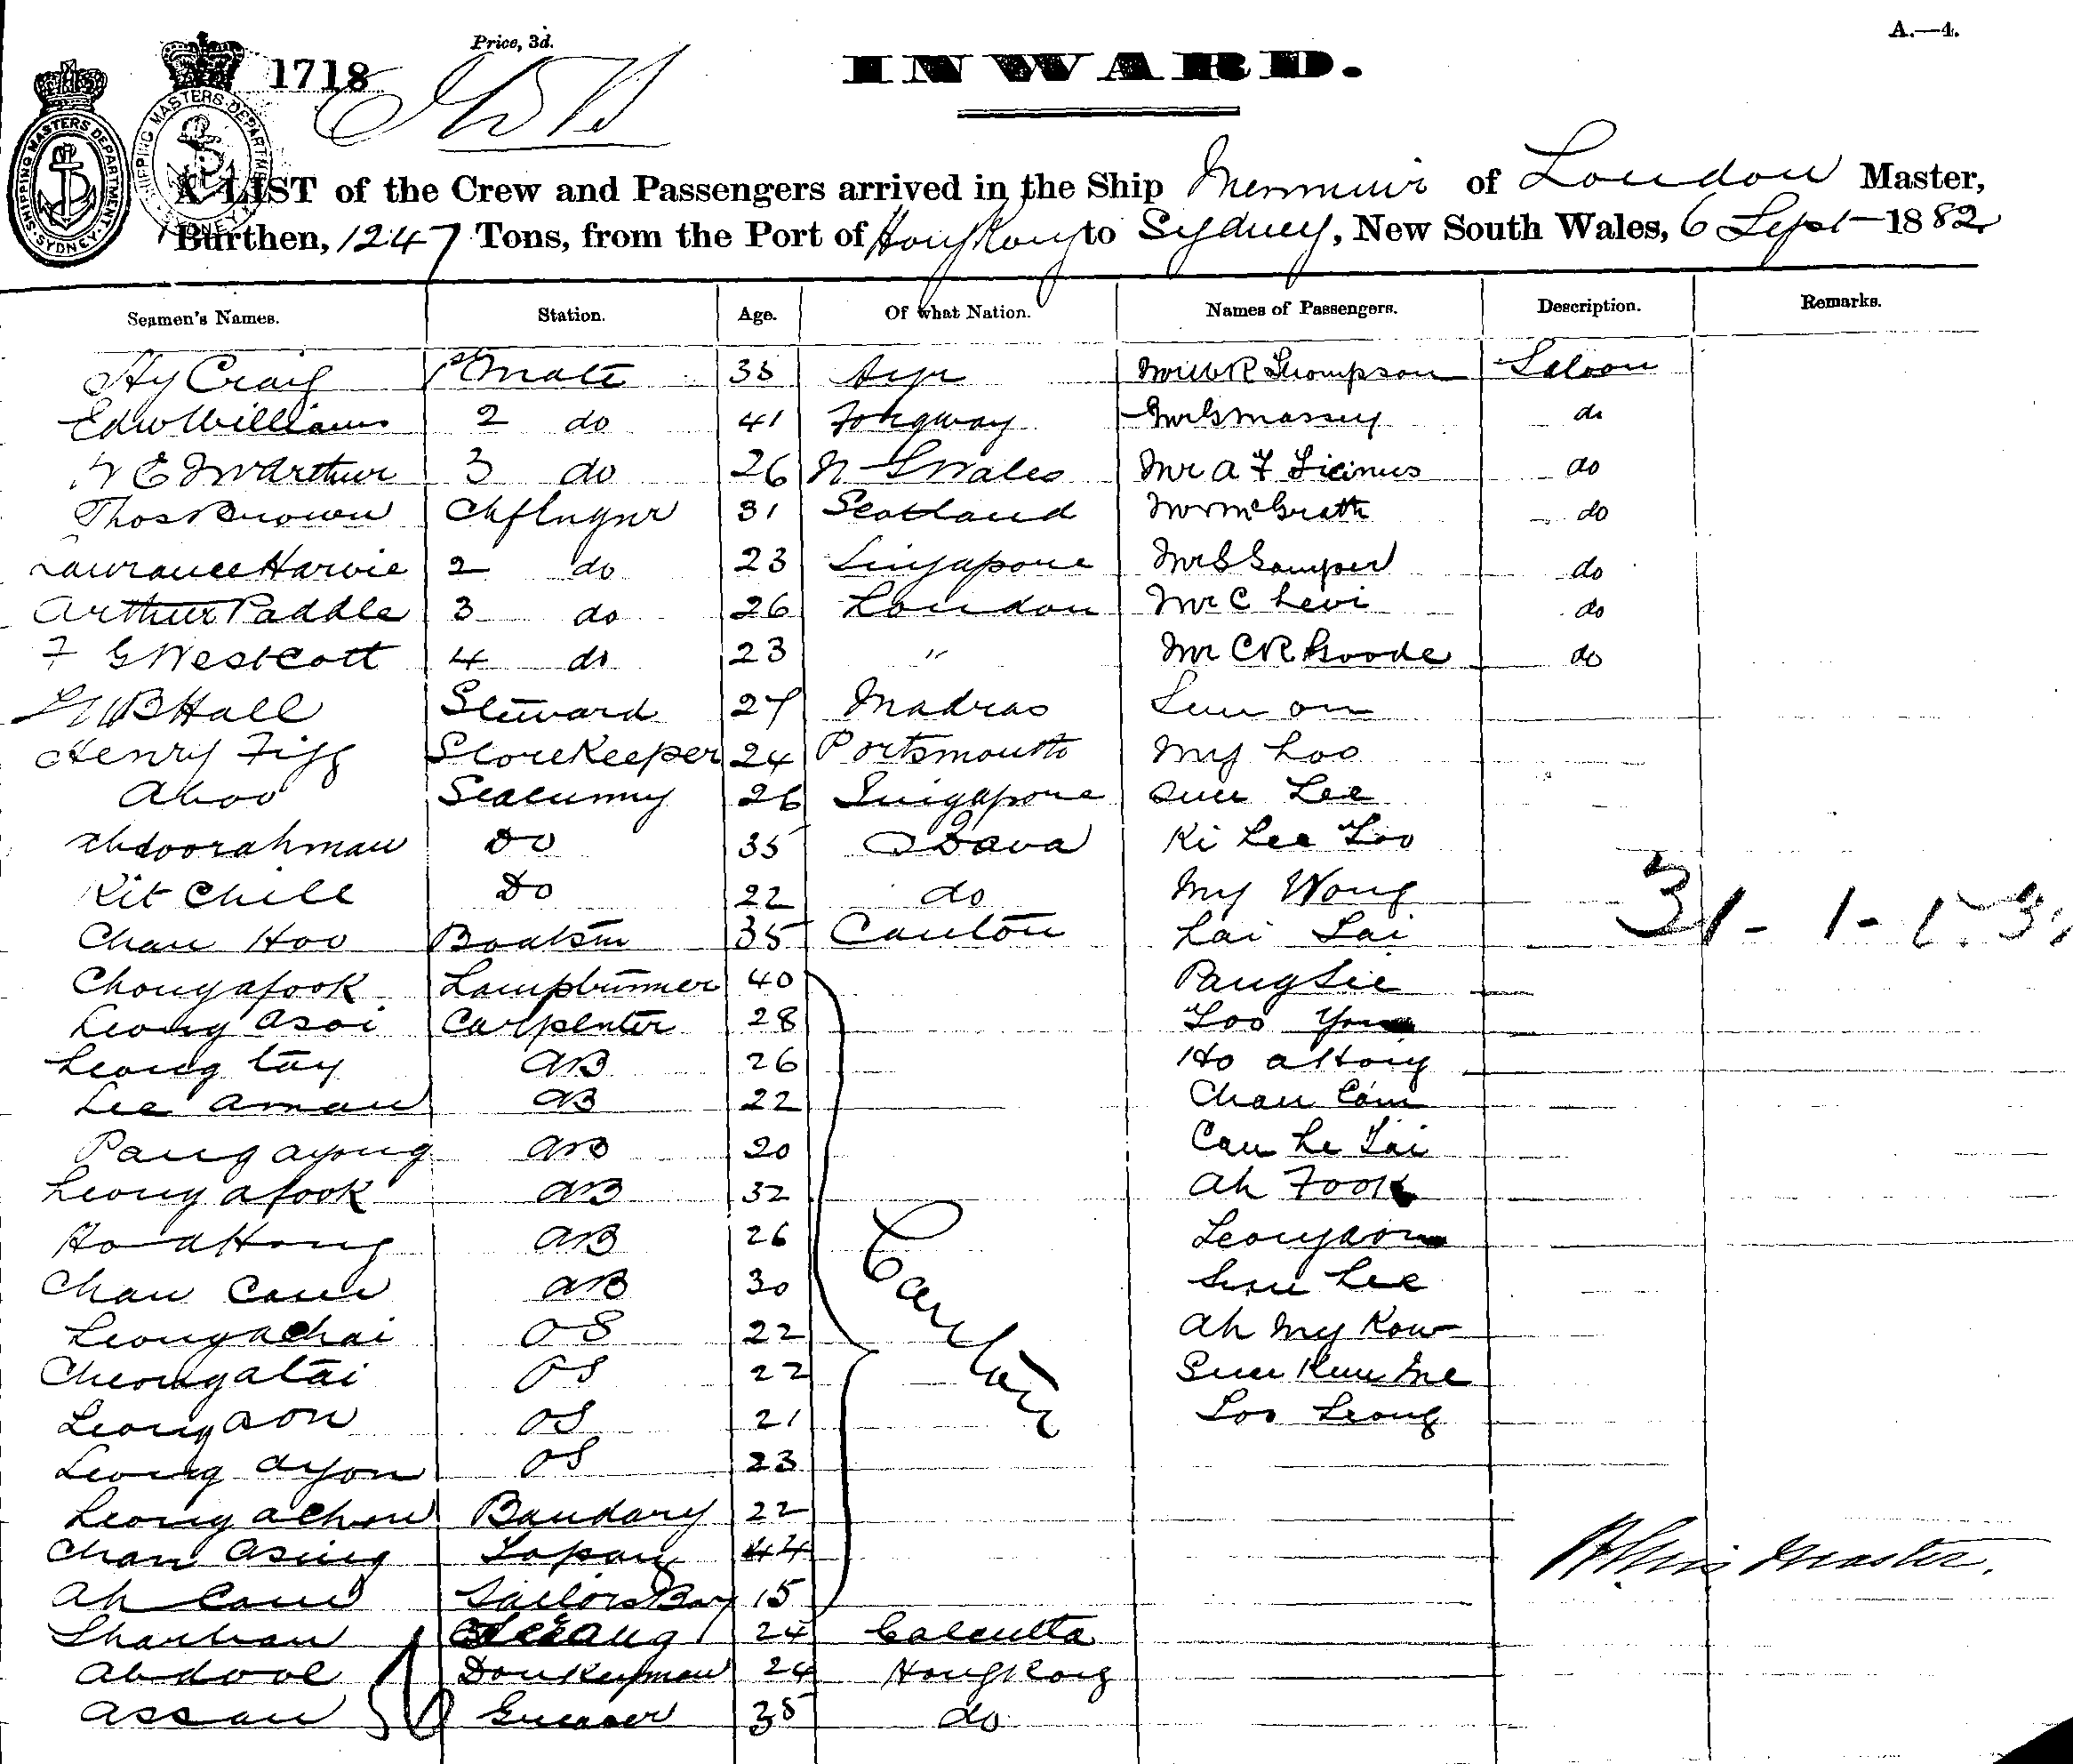 A.—4.
Price, 3d.
1718
INWARD.
SHIPPING MASTERS DEPARTMENT SYDNEY
SHIPPING MASTERS DEPARTMENT SYDNEY
A LIST of the Crew and Passengers arrived in the Ship of London Master,
Burthen, 1247 Tons, from the Port of Hong Kong to Sydney, New South Wales, 6 Sept 1882
Seamen's Names. Station. Age. Of what Nation. Names of Passengers. Description. Remarks.
Hy Craig 1st Mate Ayr Thompson Saloon
Edw Williams 2 do 41 Mr G Massey do
3 do 26 N S Wales Mr A F do
Thos Brown Chf Engnr 31 Scotland McGrath do
Laurance Harvie 2 do 23 Singapore Mr S do
Arthur Paddle 3 do 26 London Mr C Levi do
F G Westcott 4 do 23 " Mr C R Goode do
Hall Steward 27 Madras Sun on
Henry Figg StoreKeeper 24 Portsmouth My Loo
Aboo Seacunny 26 Singapore Sun Lee
Abdoorahman Do 35 Java Ki Lee Loo
Kit Chill Do 22 do My Wong
Chan Hoo Boatsn 35 Canton Lai Lai
31 - 1 -
Chongafook Lamptrimmer 40 Pang Sie
Leong Asoi Carpenter 28 Loo
Leong Tay AB 26 Ho a Hong
Lee Aman AB 22 Chan Cam
Pang ayong AB 20 Cau Le Tai
Leong afook AB 32 Ah Fook
Ho a Hong AB 26 Leong aon
Chan Cam AB 30 Sun Lee
Leong achai OS 22 Ah My Kow
Cheong atai OS 22 Sun Kum
Leong aon OS 21 Loo Leong
Leong ayon OS 23
Canton
Leong achow Bandary 22
Chan asing Topaz 44
Ah Cam Sailors Boy 15
Master.
Sharban Serang 24 Calcutta
Abdool Donkeyman 24 Hong Kong
Assan Greaser 35 do